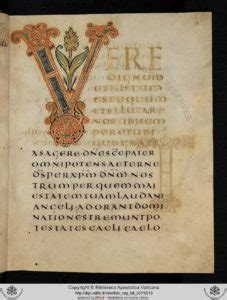 VERE
DIGNUM
ETIUSTUM
ESTEQUUM
NOSTIBISEM
PERETUBI
ASAGERE DNESCEPATER
OMNIPOTENS AETERNE
DSPERXPM DNM NOS
TRUM PERQUEM MAI
ESTATEM TUAM LAUDANT
ANGELI ADORANT DOMI
NATIONES TREMUNT PO
TESTATES CAELI CAELO
Copyright © Biblioteca Apostolica Vaticana